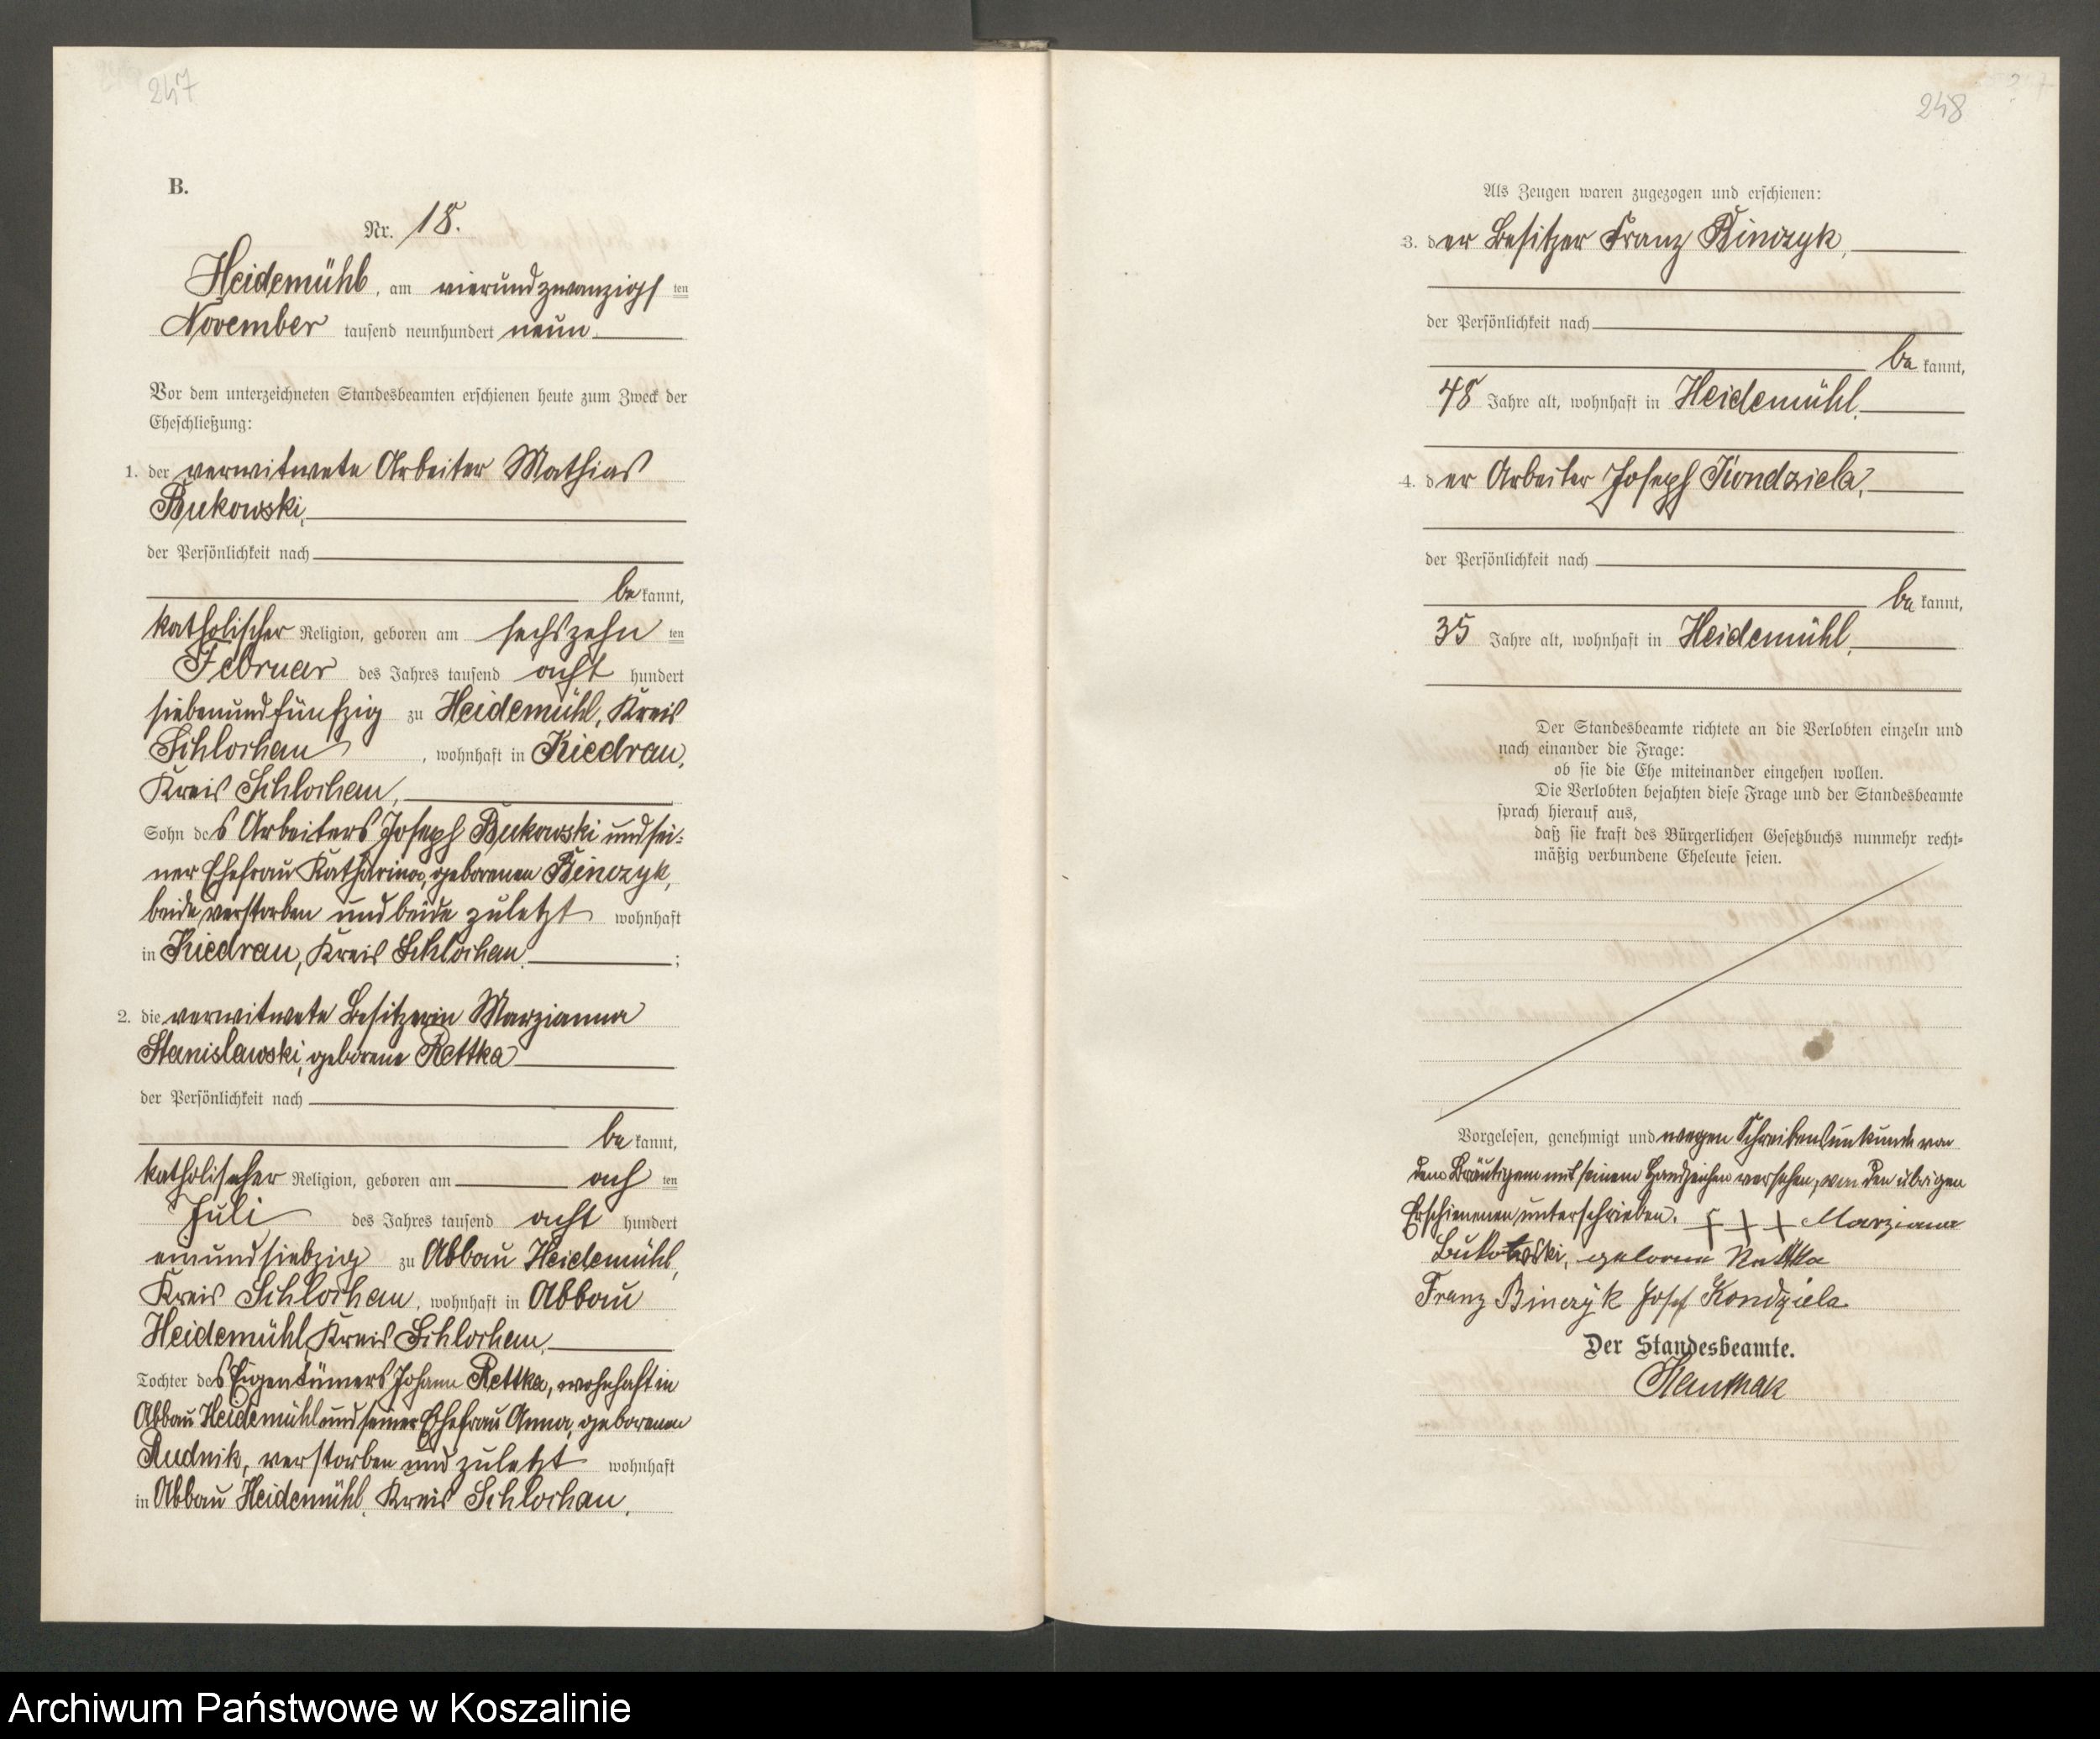 247
B.
Nr. 18.
Heidemühl, am vierundzwanzigs ten
November tausend neunhundert neun
Vor dem unterzeichneten Standesbeamten erschienen heute zum Zweck der
Eheschließung:
1. der verwitwete Arbeiter Mathias
Bukowski,
der Persönlichkeit nach
be kannt,
katholischer Religion, geboren am sechszehn ten
Februar des Jahres tausend acht hundert
siebenundfünfzig zu Heidemühl, Kreis
Schlochau, wohnhaft in Kiedrau,
Kreis Schlochau,
Sohn des Arbeiters Joseph Bukowski und sei-
ner Ehefrau Katharina, geborenen Binczyk,
beide verstorben und beide zuletzt wohnhaft
in Kiedrau, Kreis Schlochau ;
2. die verwitwete Besitzerin Marzianna
Stanislawski, geborene Rettka
der Persönlichkeit nach
be kannt,
katholischer Religion, geboren am ach ten
Juli des Jahres tausend acht hundert
einundsiebzig zu Abbau Heidemühl,
Kreis Schlochau, wohnhaft in Abbau
Heidemühl, Kreis Schlochau,
Tochter des Eigentümers Johann Rettka, wohnhaft in
Abbau Heidemühl und seiner Ehefrau Anna, geborenen
Rudnik, verstorben und zuletzt wohnhaft
in Abbau Heidemühl, Kreis Schlochau.
248
Als Zeugen waren zugezogen und erschienen:
3. der Besitzer Franz Binczyk,
der Persönlichkeit nach
be kannt,
48 Jahre alt, wohnhaft in Heidemühl.
4. der Arbeiter Joseph Kondziela,
der Persönlichkeit nach
be kannt,
35 Jahre alt, wohnhaft in Heidemühl.
Der Standesbeamte richtete an die Verlobten einzeln und
nach einander die Frage:
ob sie die Ehe miteinander eingehen wollen.
Die Verlobten bejahten diese Frage und der Standesbeamte
sprach hierauf aus,
daß sie kraft des Bürgerlichen Gesetzbuchs nunmehr recht-
mäßig verbundene Eheleute seien.
Vorgelesen, genehmigt und wegen Schreibensunkunde von
dem Bräutigam mit seinem Handzeichen versehen, von den übrigen
Erschienenen unterschrieben. + + + Marziana
Bukowski, geborene Rettka
Franz Binczyk Josef Kondziela
Der Standesbeamte.
Archiwum Państwowe w Koszalinie